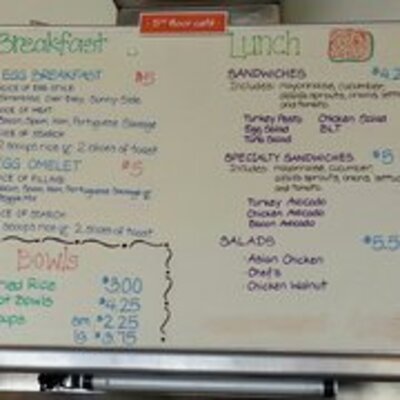 5th floor café
Breakfast
EGG BREAKFAST $5
CE OF EGG STYLE
Scrambled, Over Easy, Sunny Side
CE OF MEAT
Bacon, Spam, Ham, Portuguese Sausage
CE OF STARCH
2 scoops rice or 2 slices of toast
EGG OMELET $5
CE OF FILLING
Bacon, Spam, Ham, Portuguese Sausage or
Veggie Mix
CE OF STARCH
scoops rice or 2 slices of toast
Bowls
ried Rice $3.00
ot Bowls $4.25
oups sm $2.25
lg $3.75
Lunch
SANDWICHES $4.2
Includes: mayonnaise, cucumber,
sprouts, onions, lettuc
and tomato
Turkey Pesto Chicken Salad
Egg Salad BLT
Tuna Salad
SPECIALTY SANDWICHES $5
Includes: mayonnaise, cucumber,
sprouts, onions, lettuc
and tomato
Turkey Avocado
Chicken Avocado
Bacon Avocado
SALADS $5.5
Asian Chicken
Chef's
Chicken Walnut